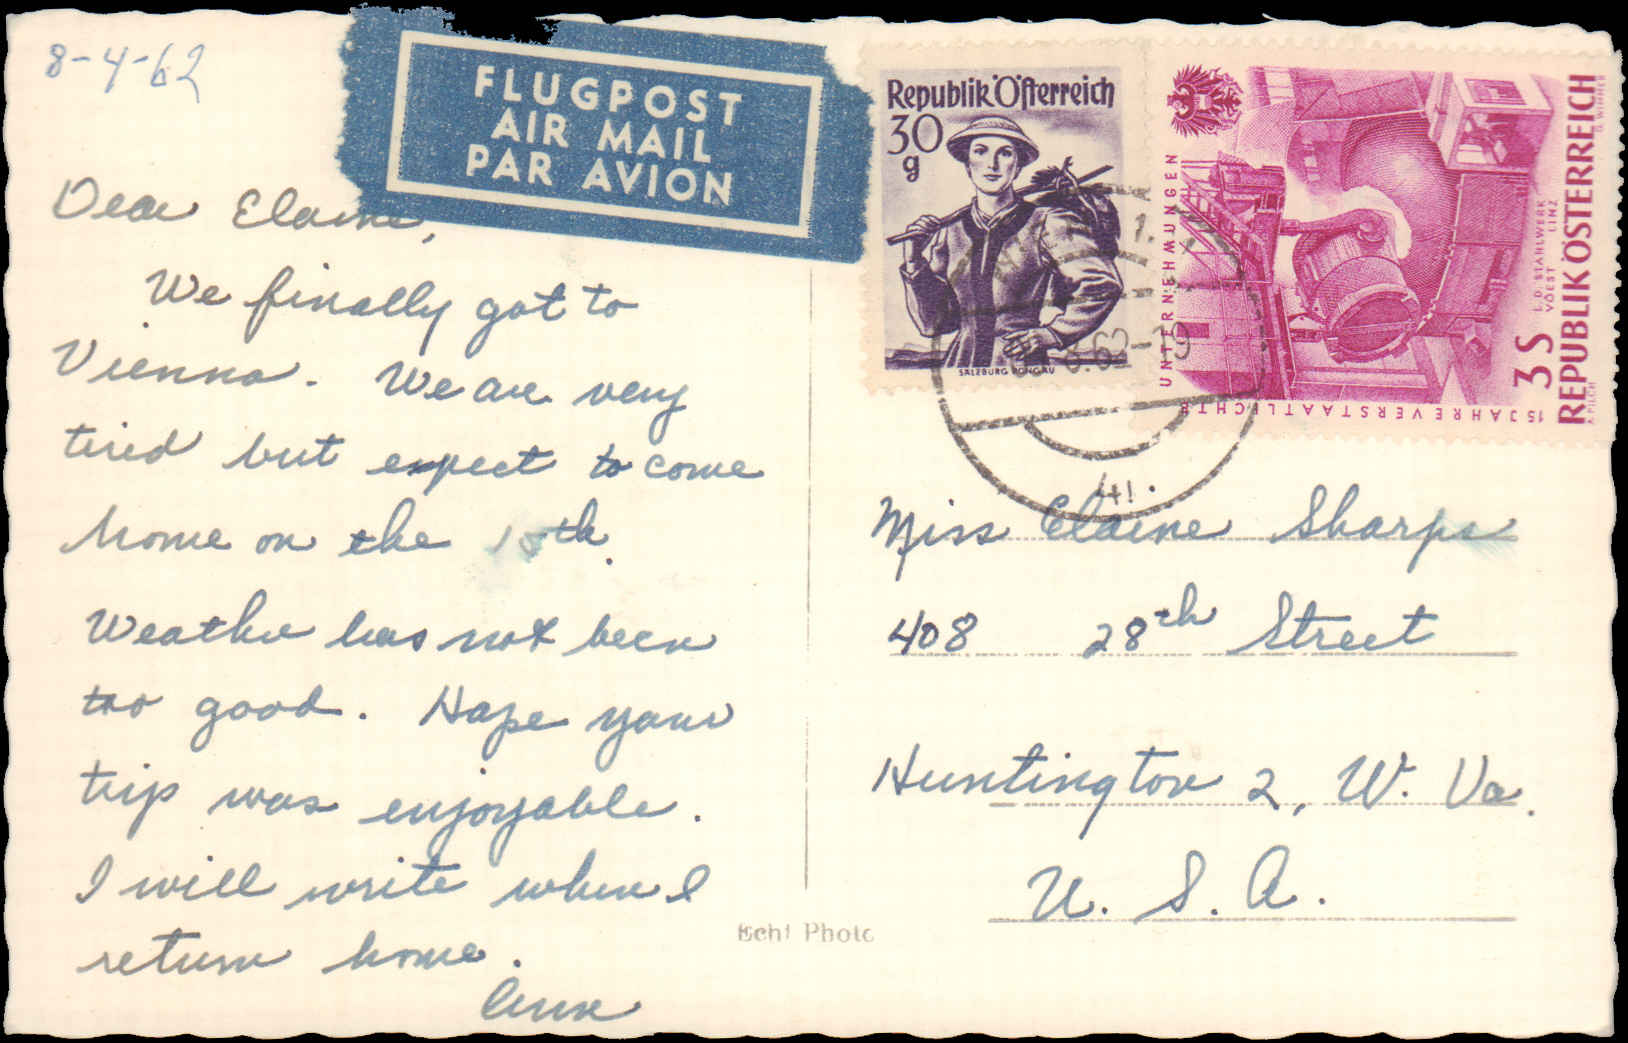 8-4-62
FLUGPOST
AIR MAIL
PAR AVION
Republik Österreich
30
g
SALZBURG PONGAU
UNTERNEHMUNGEN
15 JAHRE VERSTAATLICHTE
L.D. STAHLWERK
VÖEST LINZ
3 S
REPUBLIK ÖSTERREICH
Dear Elaine,
We finally got to
Vienna. We are very
tired but expect to come
home on the 10th.
Weather has not been
too good. Hope your
trip was enjoyable.
I will write when I
return home.
Ann
Echt Photo
Miss Elaine Sharps
408 28th Street
Huntington 2, W. Va.
U. S. A.